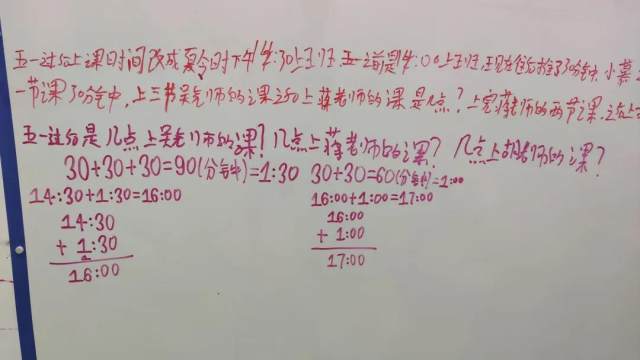 五一过后上课时间改成夏令时下午14:30上班 五一之前是14:00上班,现在往后推了30分钟,小慕
一节课30分钟,上三节吴老师的课之后上蒋老师的课是几点?上完蒋老师的两节课,之后上
五一过后是几点上吴老师的课?几点上蒋老师的课?几点上胡老师的课?
30+30+30=90(分钟)=1:30 30+30=60(分钟)=1:00
14:30+1:30=16:00 16:00+1:00=17:00
14:30 16:00
+ 1:30 + 1:00
16:00 17:00